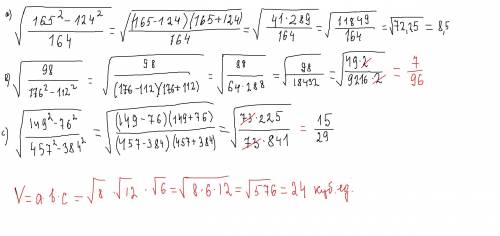 a) √((165² - 124²)/164) = √((165-124)(165+124)/164) = √(41·289/164) = √(11849/164) = √72,25 = 8,5
в) √(98/(176² - 112²)) = √(98/((176-112)(176+112))) = √(98/(64·288)) = √(98/18432) = √(49·2/(9216·2)) = 7/96
c) √((149² - 76²)/(457² - 384²)) = √((149-76)(149+76)/((457-384)(457+384))) = √(73·225/(73·841)) = 15/29
V = a·b·c = √8 · √12 · √6 = √(8·6·12) = √576 = 24 куб.ед.